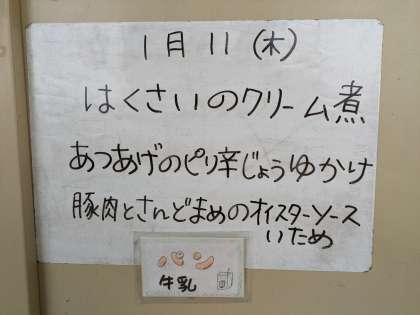 1月11(木)
はくさいのクリーム煮
あつあげのピリ辛じょうゆかけ
豚肉とさんどまめのオイスターソース
いため
パン
牛乳